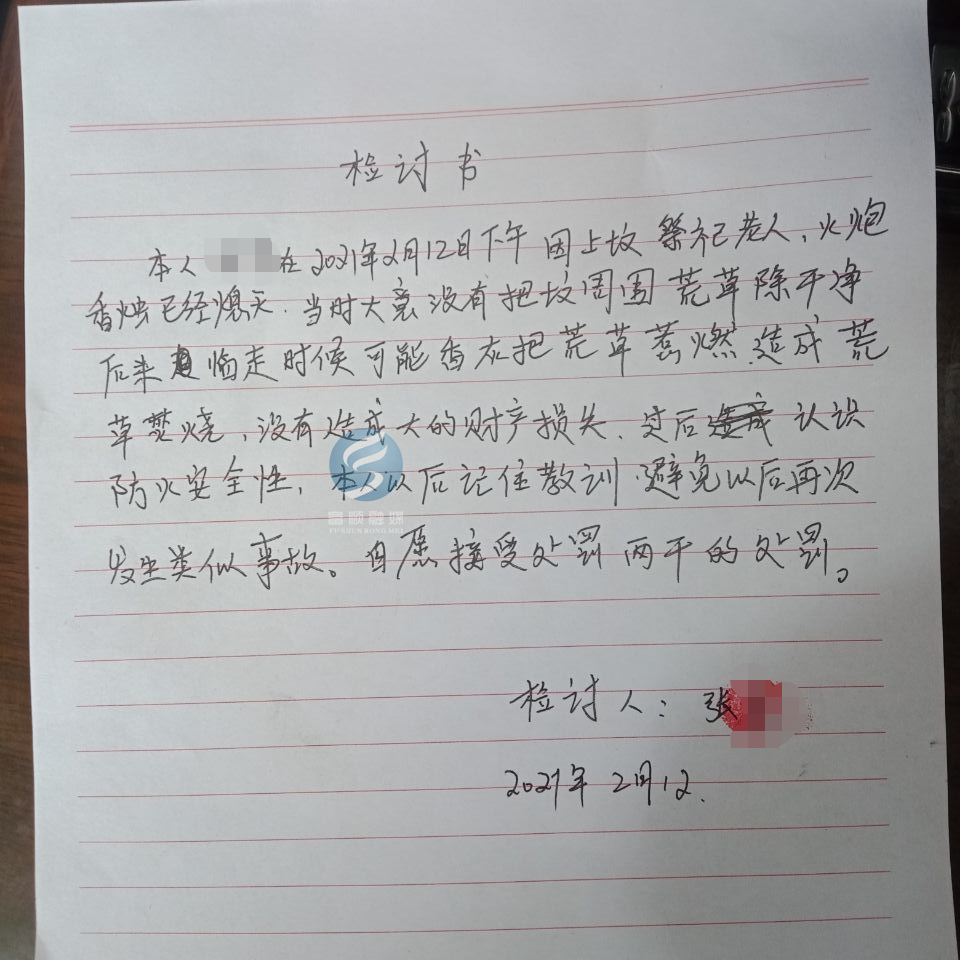 检讨书
本人 在2021年2月12日下午因上坟祭祀老人,火炮
香烛已经熄灭.当时大意没有把坟周围荒草除干净
后来临走时候可能香灰把荒草惹燃造成荒
草焚烧,没有造成大的财产损失、过后造成认识
防火安全性,本人以后记住教训.避免以后再次
发生类似事故。自愿接受处罚两千的处罚。
检讨人:张
2021年2月12.
富顺融媒
FUSHUN RONG MEI